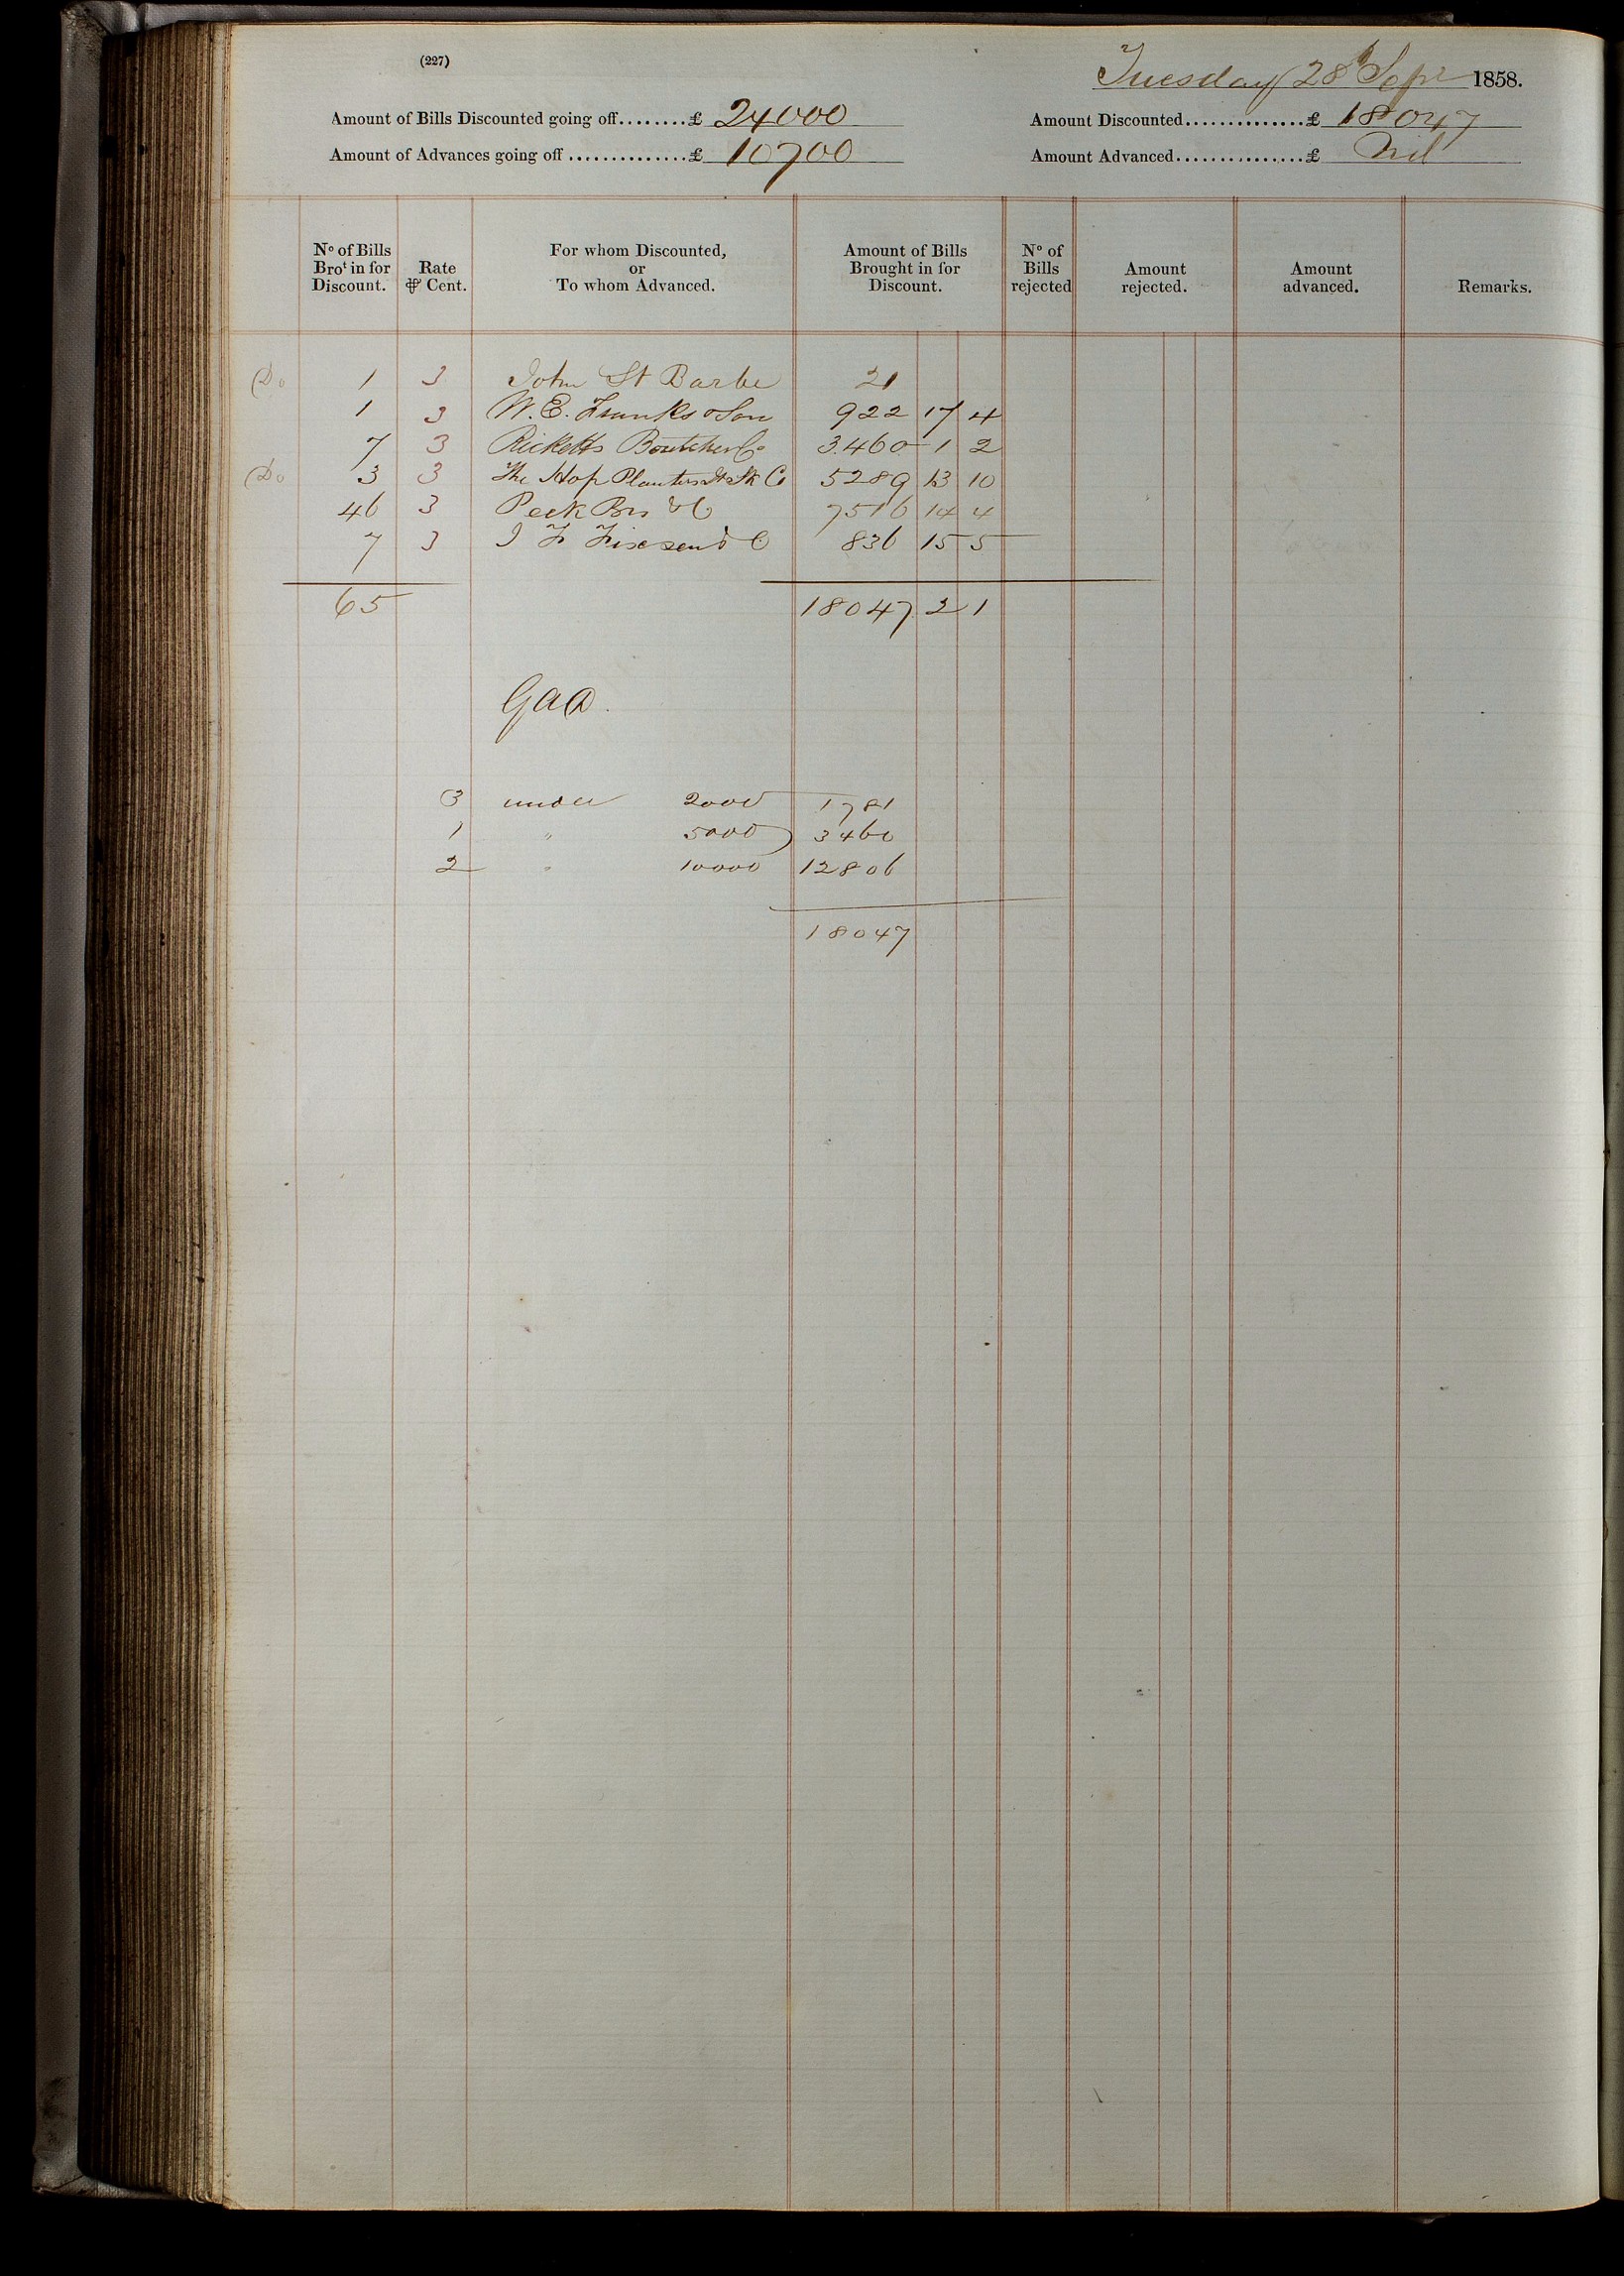 (227)
Tuesday 28 Sepr 1858.
Amount of Bills Discounted going off........£ 24000
Amount Discounted..............£ 18047
Amount of Advances going off..............£ 10700
Amount Advanced...............£ Nil
No of Bills Brot in for Discount. Rate ⅌ Cent. For whom Discounted, or To whom Advanced. Amount of Bills Brought in for Discount. No of Bills rejected Amount rejected. Amount advanced. Remarks.
Do 1 3 John St Barbe 21
1 3 W. E. Franks & Son 922 17 4
7 3 Ricketts Boutcher & Co 3460 1 2
Do 3 3 The Hop Planters Jt Stk Co 5289 13 10
46 3 Peek Bros & C 7516 14 4
7 3 836 15 5
65 18047 2 1
3 under 2000 1781
1 " 5000 3460
2 " 10000 12806
18047